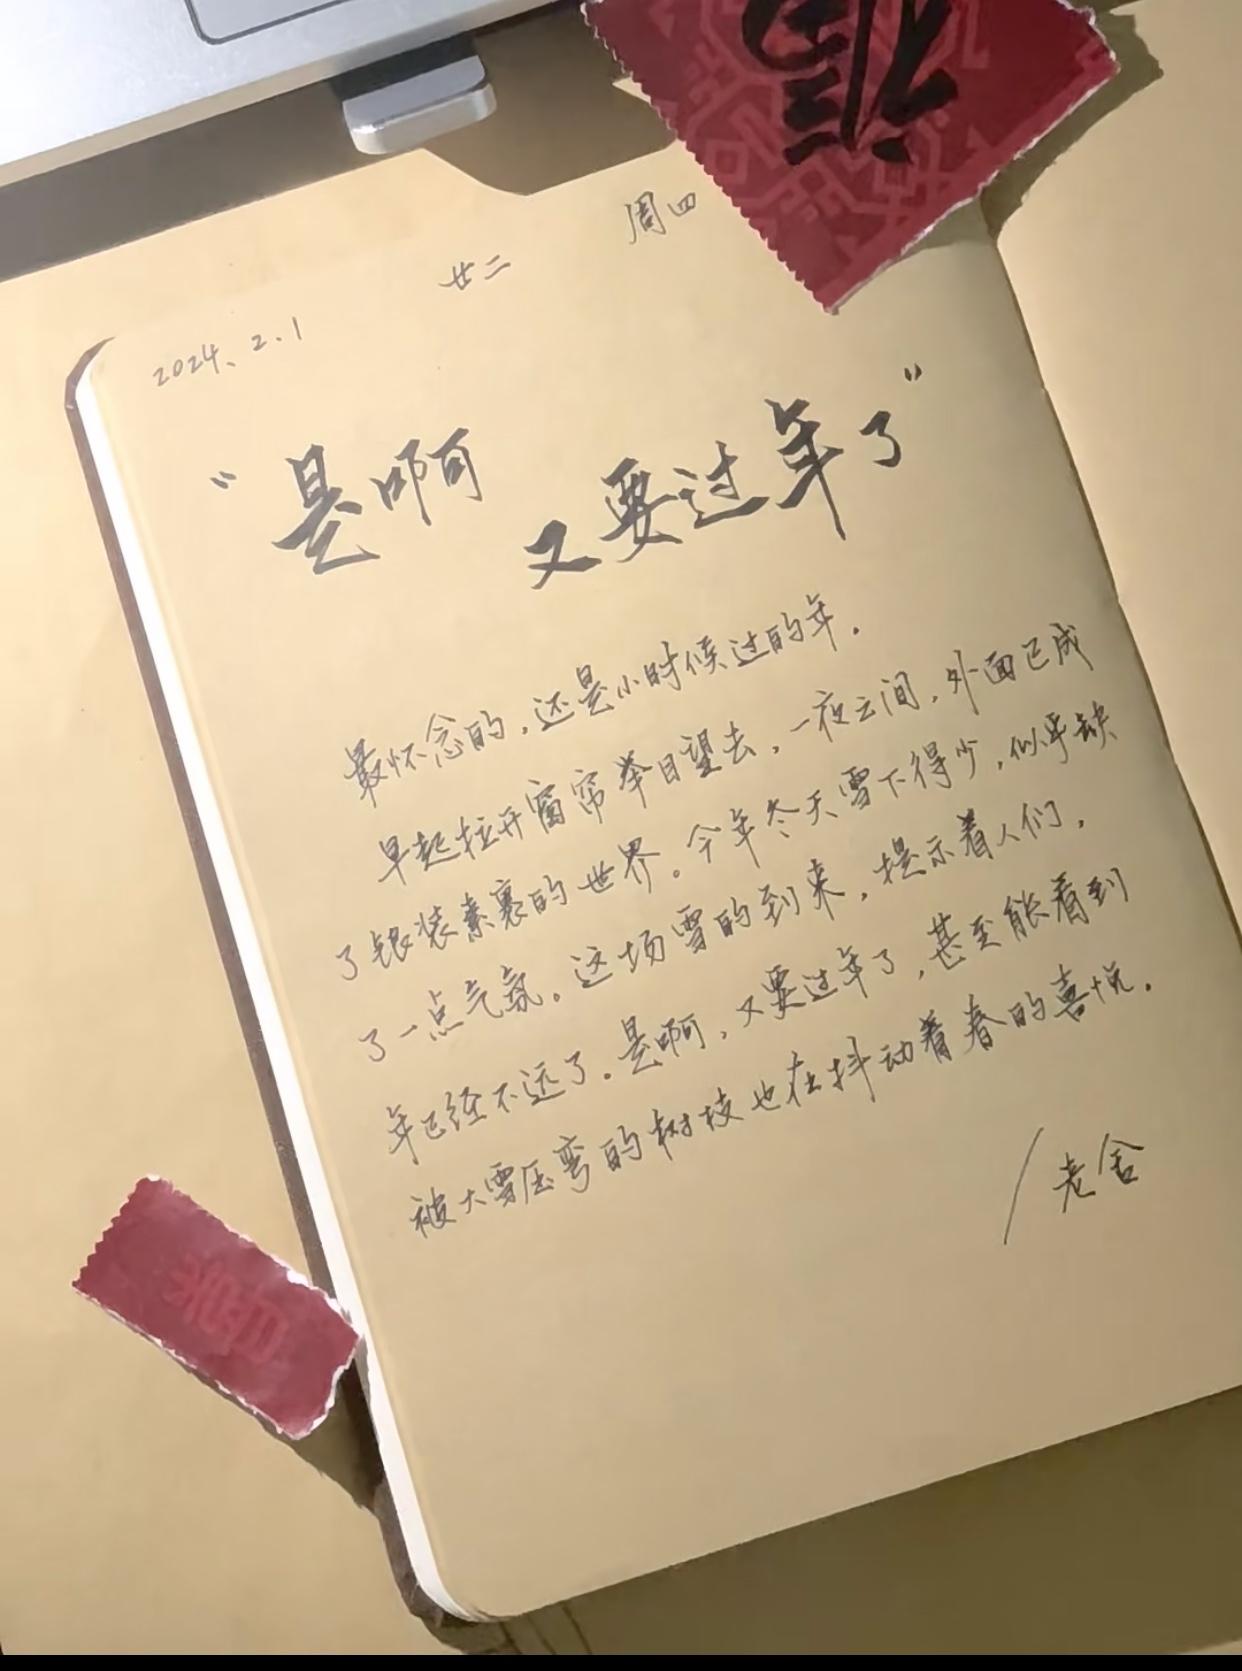 福
2024.2.1 廿二 周四
“是啊
又要过年了”
最怀念的，还是小时候过的年。
早起拉开窗帘举目望去，一夜之间，外面已成
了银装素裹的世界。今年冬天雪下得少，似乎缺
了一点气氛。这场雪的到来，提示着人们，
年已经不远了。是啊，又要过年了，甚至能看到
被大雪压弯的树枝也在抖动着春的喜悦。
/老舍